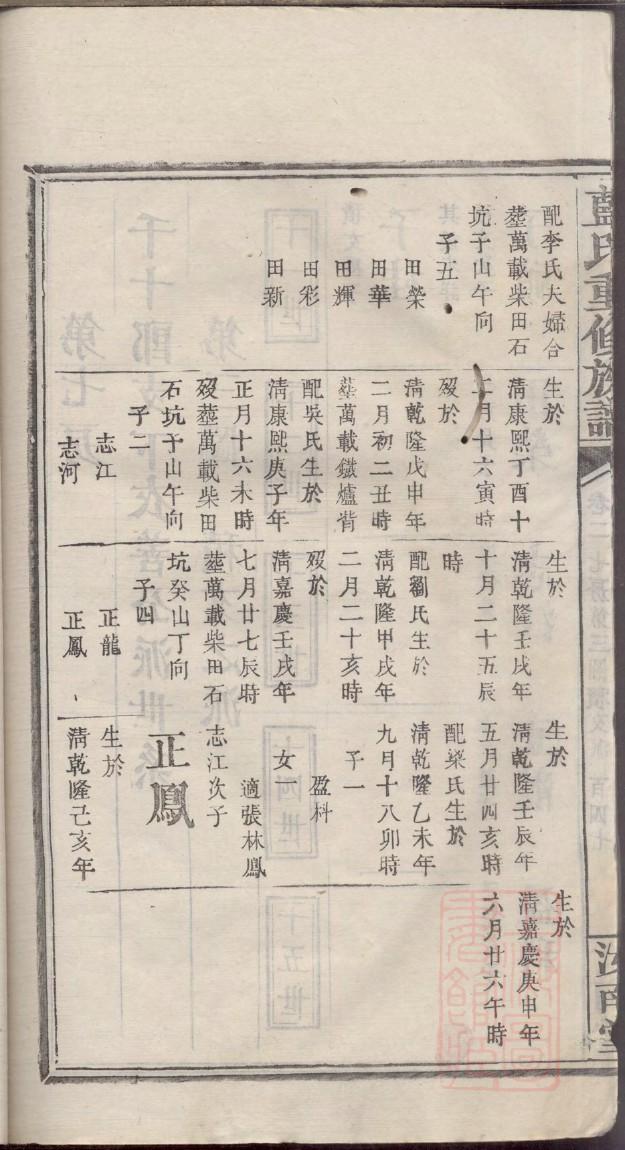 藍氏重修族譜
汝南堂
配李氏夫婦合
塟萬載柴田石
坑子山午向
子五
田榮
田華
田輝
田彩
田新
生於
清康熙丁酉十
二月十六寅時
歿於
清乾隆戊申年
二月初二丑時
塟萬載鐵爐背
配吳氏生於
清康熙庚子年
正月十六未時
歿塟萬載柴田
石坑子山午向
子二
志江
志河
生於
清乾隆壬戌年
十月二十五辰
時
配劉氏生於
清乾隆甲戌年
二月二十亥時
歿於
清嘉慶壬戌年
七月廿七辰時
塟萬載柴田石
坑癸山丁向
子四
正龍
正鳳
生於
清乾隆壬辰年
五月廿四亥時
配梁氏生於
清乾隆乙未年
九月十八卯時
子一
盈科
女一
適張林鳳
志江次子
正鳳
生於
清乾隆己亥年
生於
清嘉慶庚申年
六月廿六午時